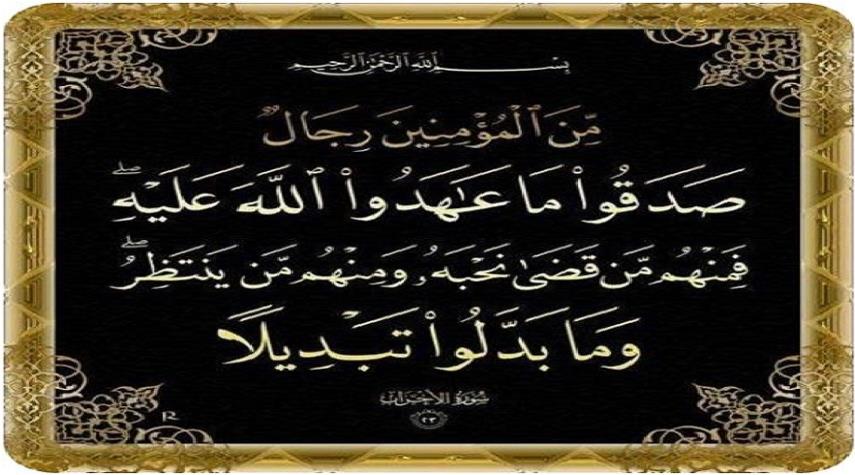 بِسْمِ ٱللَّهِ ٱلرَّحْمَٰنِ ٱلرَّحِيمِ
مِّنَ ٱلْمُؤْمِنِينَ رِجَالٌ
صَدَقُوا۟ مَا عَـٰهَدُوا۟ ٱللَّهَ عَلَيْهِ ۖ
فَمِنْهُم مَّن قَضَىٰ نَحْبَهُۥ وَمِنْهُم مَّن يَنتَظِرُ ۖ
وَمَا بَدَّلُوا۟ تَبْدِيلًا
سُورَةُ الأَحْزَابِ
٢٣
R